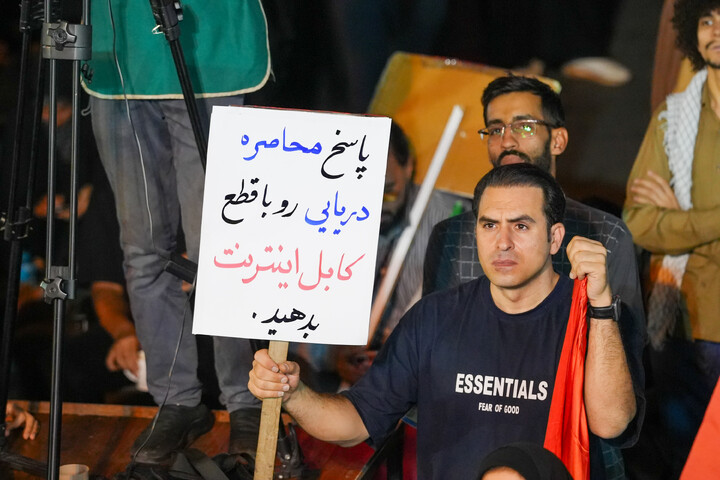 پاسخ محاصره
دریایی رو با قطع
کابل اینترنت
بدهید.
ESSENTIALS
FEAR OF GOOD